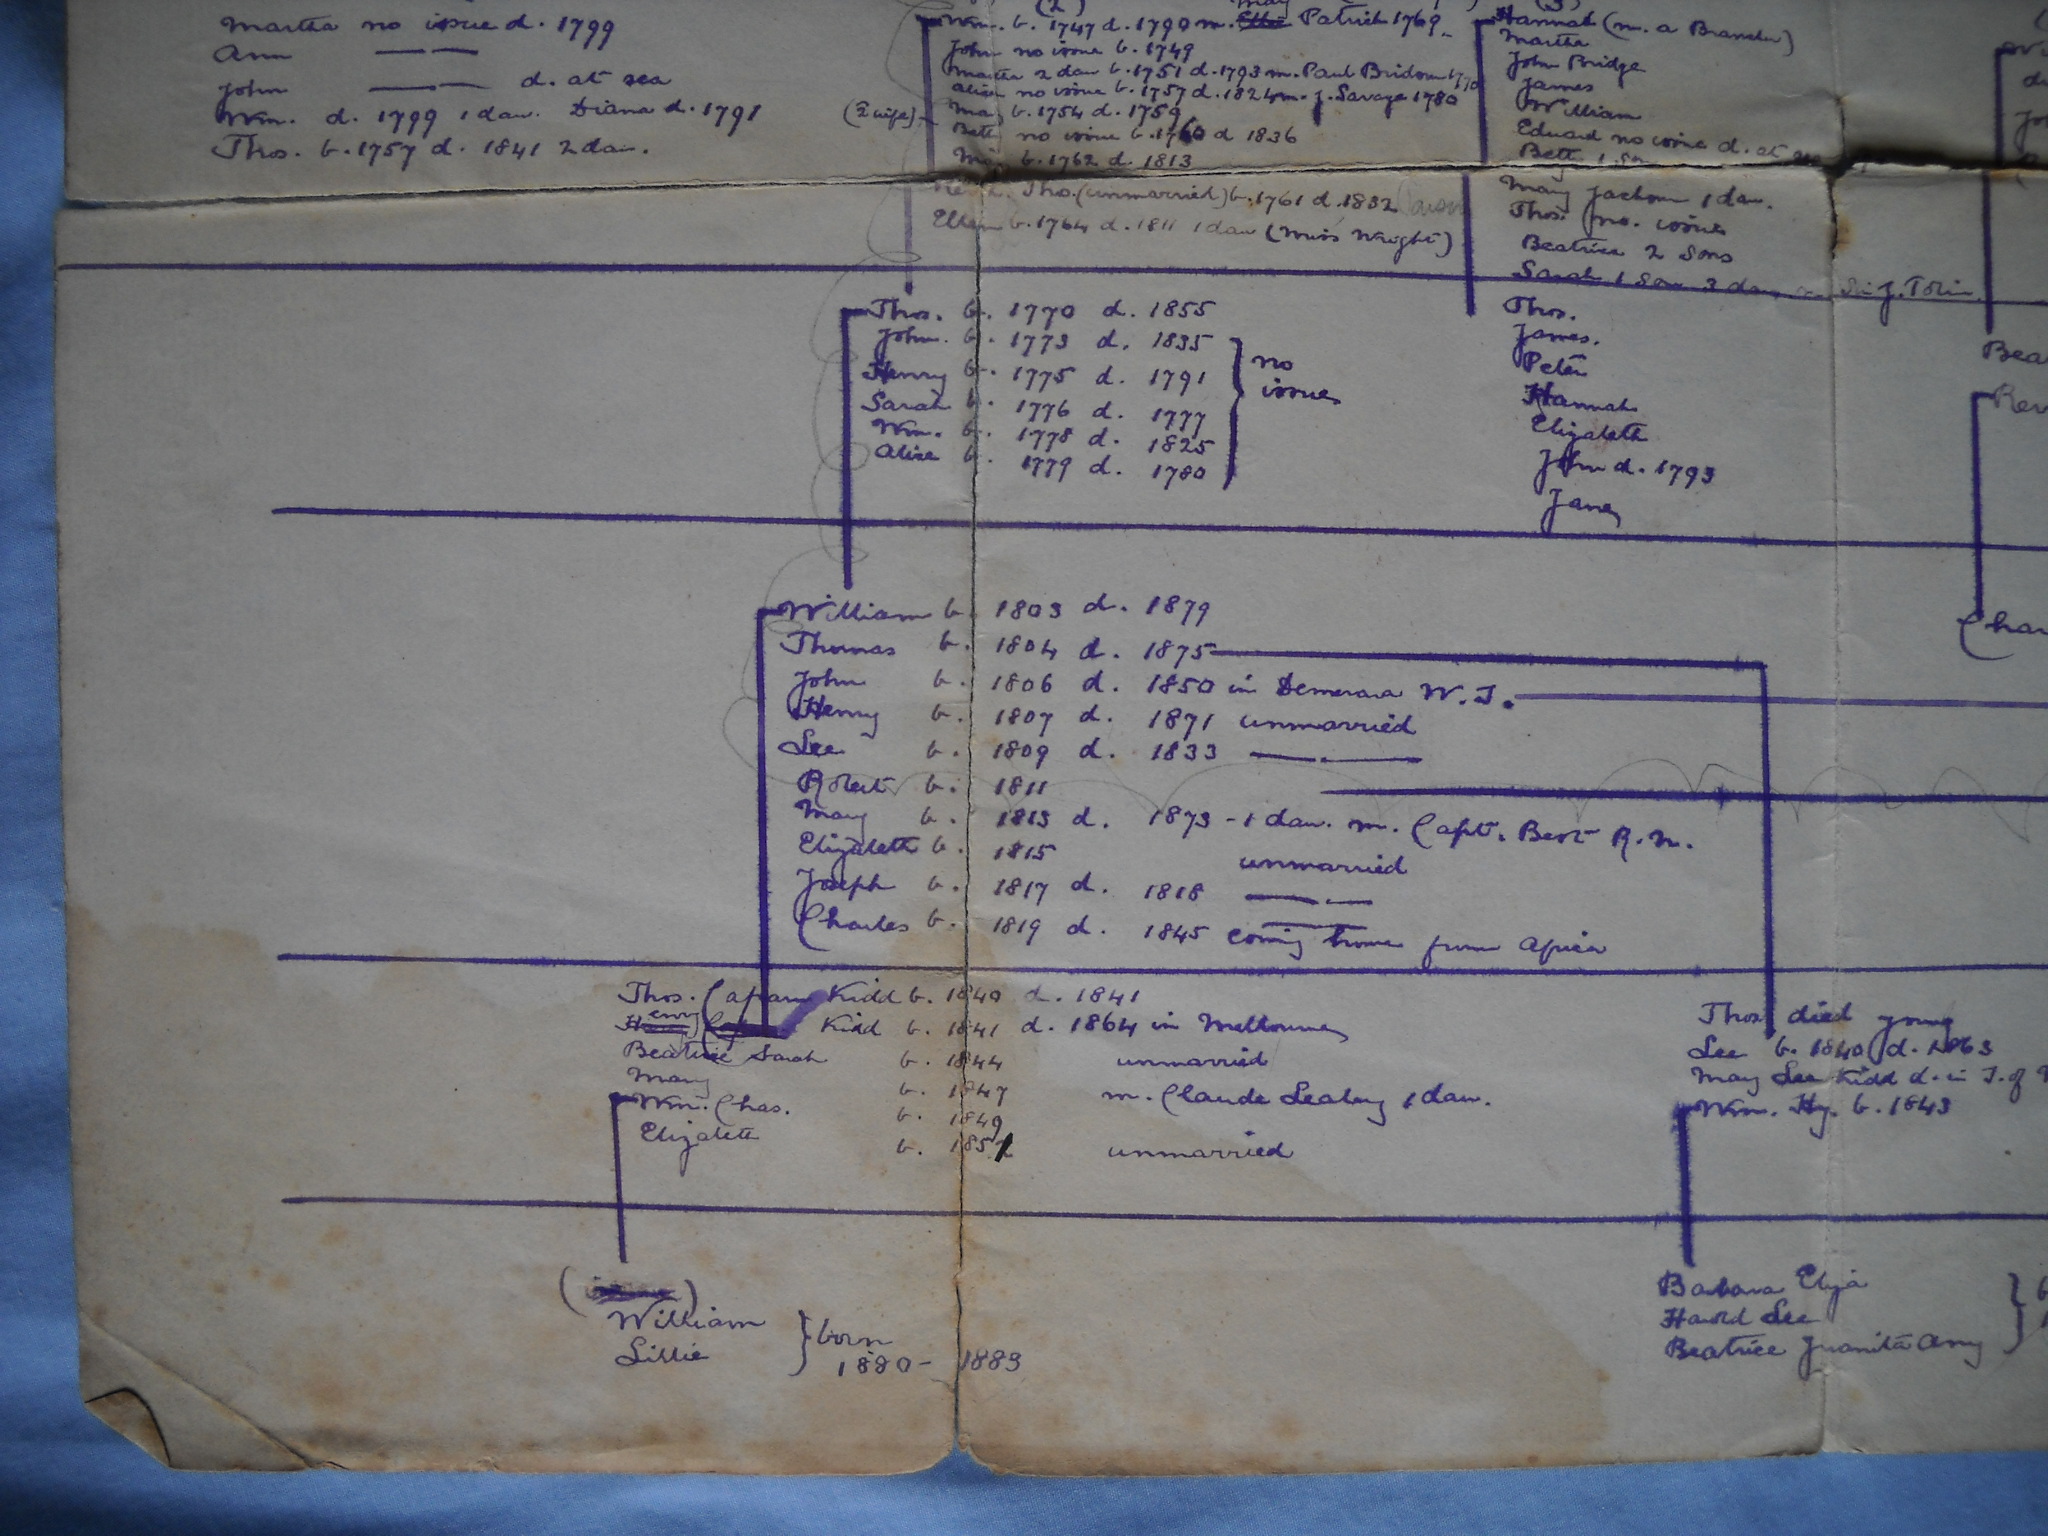 Martha no issue d. 1799
Ann —— ——
John —— —— d. at sea
Wm. d. 1799 1 dau. Diana d. 1791
Thos. b. 1757 d. 1841 2 dau.
(2)
May
Wm. b. 1747 d. 1790 m. Patrick 1769
John no issue b. 1749
Martha 2 dau b. 1751 d. 1793 m. Paul Bridson 1770
Alice no issue b. 1757 d. 1824 m. J. Savage 1780
(2 wife) May b. 1754 d. 1759
Bett no issue b. 1760 d 1836
May b. 1762 d. 1813
Thos. (unmarried) b. 1761 d. 1832
Ellen b. 1764 d. 1811 1 dau (Miss Wright)
(3)
Hannah (m. a Brancker)
Martha
John Bridge
James
William
Edward no issue d. at sea
Bett 1 Son
May Jackson 1 dau.
Thos. no. issue
Beatrice 2 Sons
Sarah 1 Son 3 dau Sir J. Tobin
Thos. b. 1770 d. 1855
John b. 1773 d. 1835
Henry b. 1775 d. 1791
Sarah b. 1776 d. 1777
Wm. b. 1778 d. 1825
Alice b. 1779 d. 1780
no
issue
Thos.
James.
Peter
Hannah
Elizabeth
John d. 1793
Jane
Bea
Rev
Char
William b. 1803 d. 1879
Thomas b. 1804 d. 1875
John b. 1806 d. 1850 in Demerara W. I.
Henry b. 1807 d. 1871 unmarried
Lee b. 1809 d. 1833 —— . ——
Robert b. 1811
May b. 1813 d. 1873 - 1 dau. m. Capt. Bent R. N.
Elizabeth b. 1815 unmarried
Joseph b. 1817 d. 1818 —— . ——
Charles b. 1819 d. 1845 coming home from Africa
Thos. Capam Kidd b. 1840 d. 1841
Henry Kidd b. 1841 d. 1864 in Melbourne
Beatrice Sarah b. 1844 unmarried
May b. 1847 m. Claude Leaby 1 dau.
Wm. Chas. b. 1849
Elizabeth b. 1851 unmarried
Thos died young
Lee b. 1840 d. 1863
May Lee Kidd d. in I. of
Wm. Hy. b. 1843
William
Lillie
born
1880 - 1883
Barbara Eliza
Harold Lee
Beatrice Juanita Amy